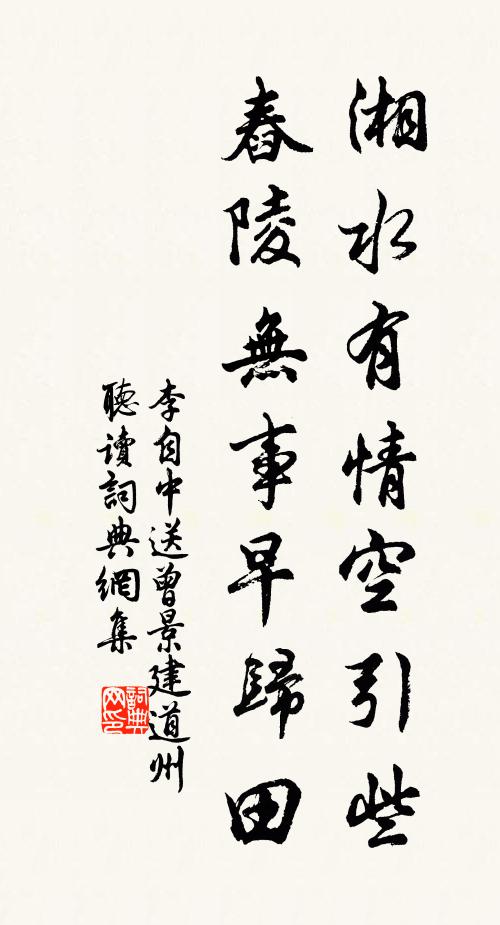 湘水有情空引些
舂陵無事早歸田
李自中送曾景建道州
聽讀詞典網集
詞典网印